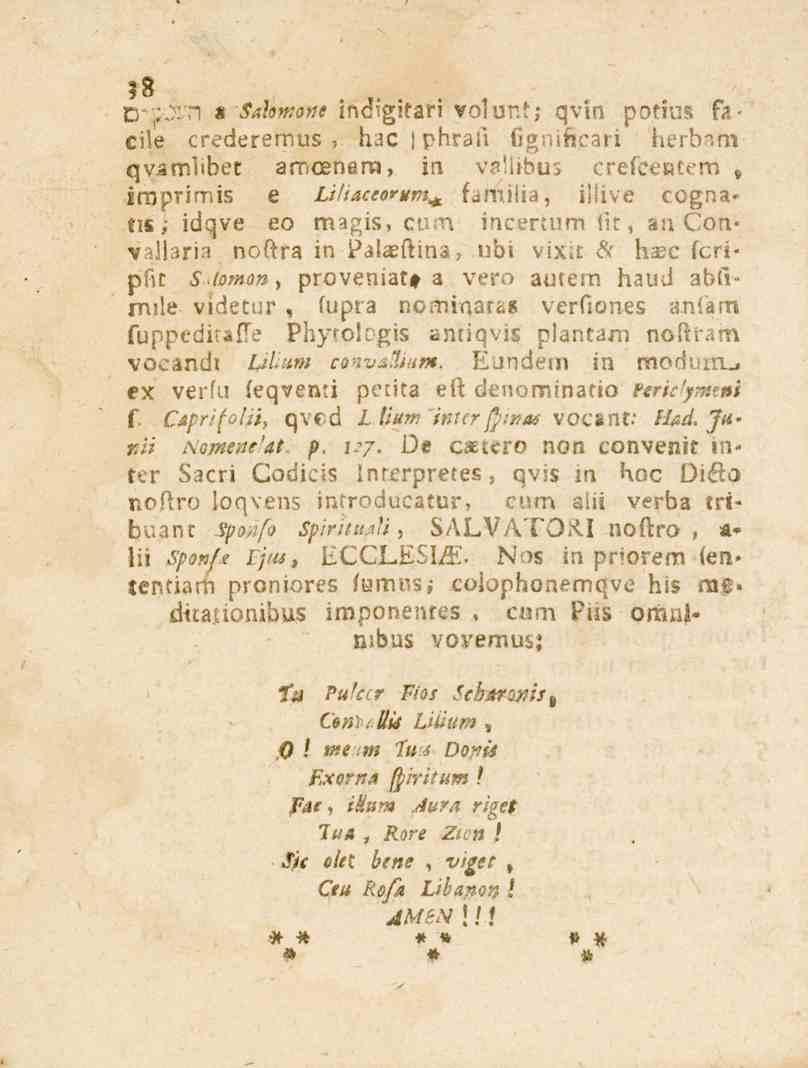 38
העמקים a Salomone indigitari volunt; qvin potius fa-
cile crederemus, hac phrasi significari herbam
qvamlibet amœnam, in vallibus crescentem,
imprimis e Liliaceorum familia, illive cogna-
tis; idqve eo magis, cum incertum sit, an Con-
vallaria nostra in Palæstina, ubi vixit & hæc scri-
psit Salomon, proveniat; a vero autem haud absi-
mile videtur, supra nominatas versiones ansam
suppeditasse Phytologis antiqvis plantam nostram
vocandi Lilium convallium. Eundem in modum
ex versu seqventi petita est denominatio Periclymeni
s. Caprifolii, qvod Lilium inter spinas vocant: Had. Ju-
nii Nomenclat. p. 127. De cætero non convenit in-
ter Sacri Codicis Interpretes, qvis in hoc Dicto
nostro loqvens introducatur, cum alii verba tri-
buant Sponso Spirituali, SALVATORI nostro, a-
lii Sponsæ Ejus, ECCLESIÆ. Nos in priorem sen-
tentiam proniores sumus; colophonemqve his me-
ditationibus imponentes, cum Piis omni-
nibus vovemus;
Tu Pulcer Flos Scharonis,
Convallis Lilium,
O! meum Tuis Donis
Exorna spiritum!
Fac, illum Aura riget
Tua, Rore Zion!
Sic olet bene, viget,
Ceu Rosa Libanon!
AMEN!!!
* * * * * *
* * *